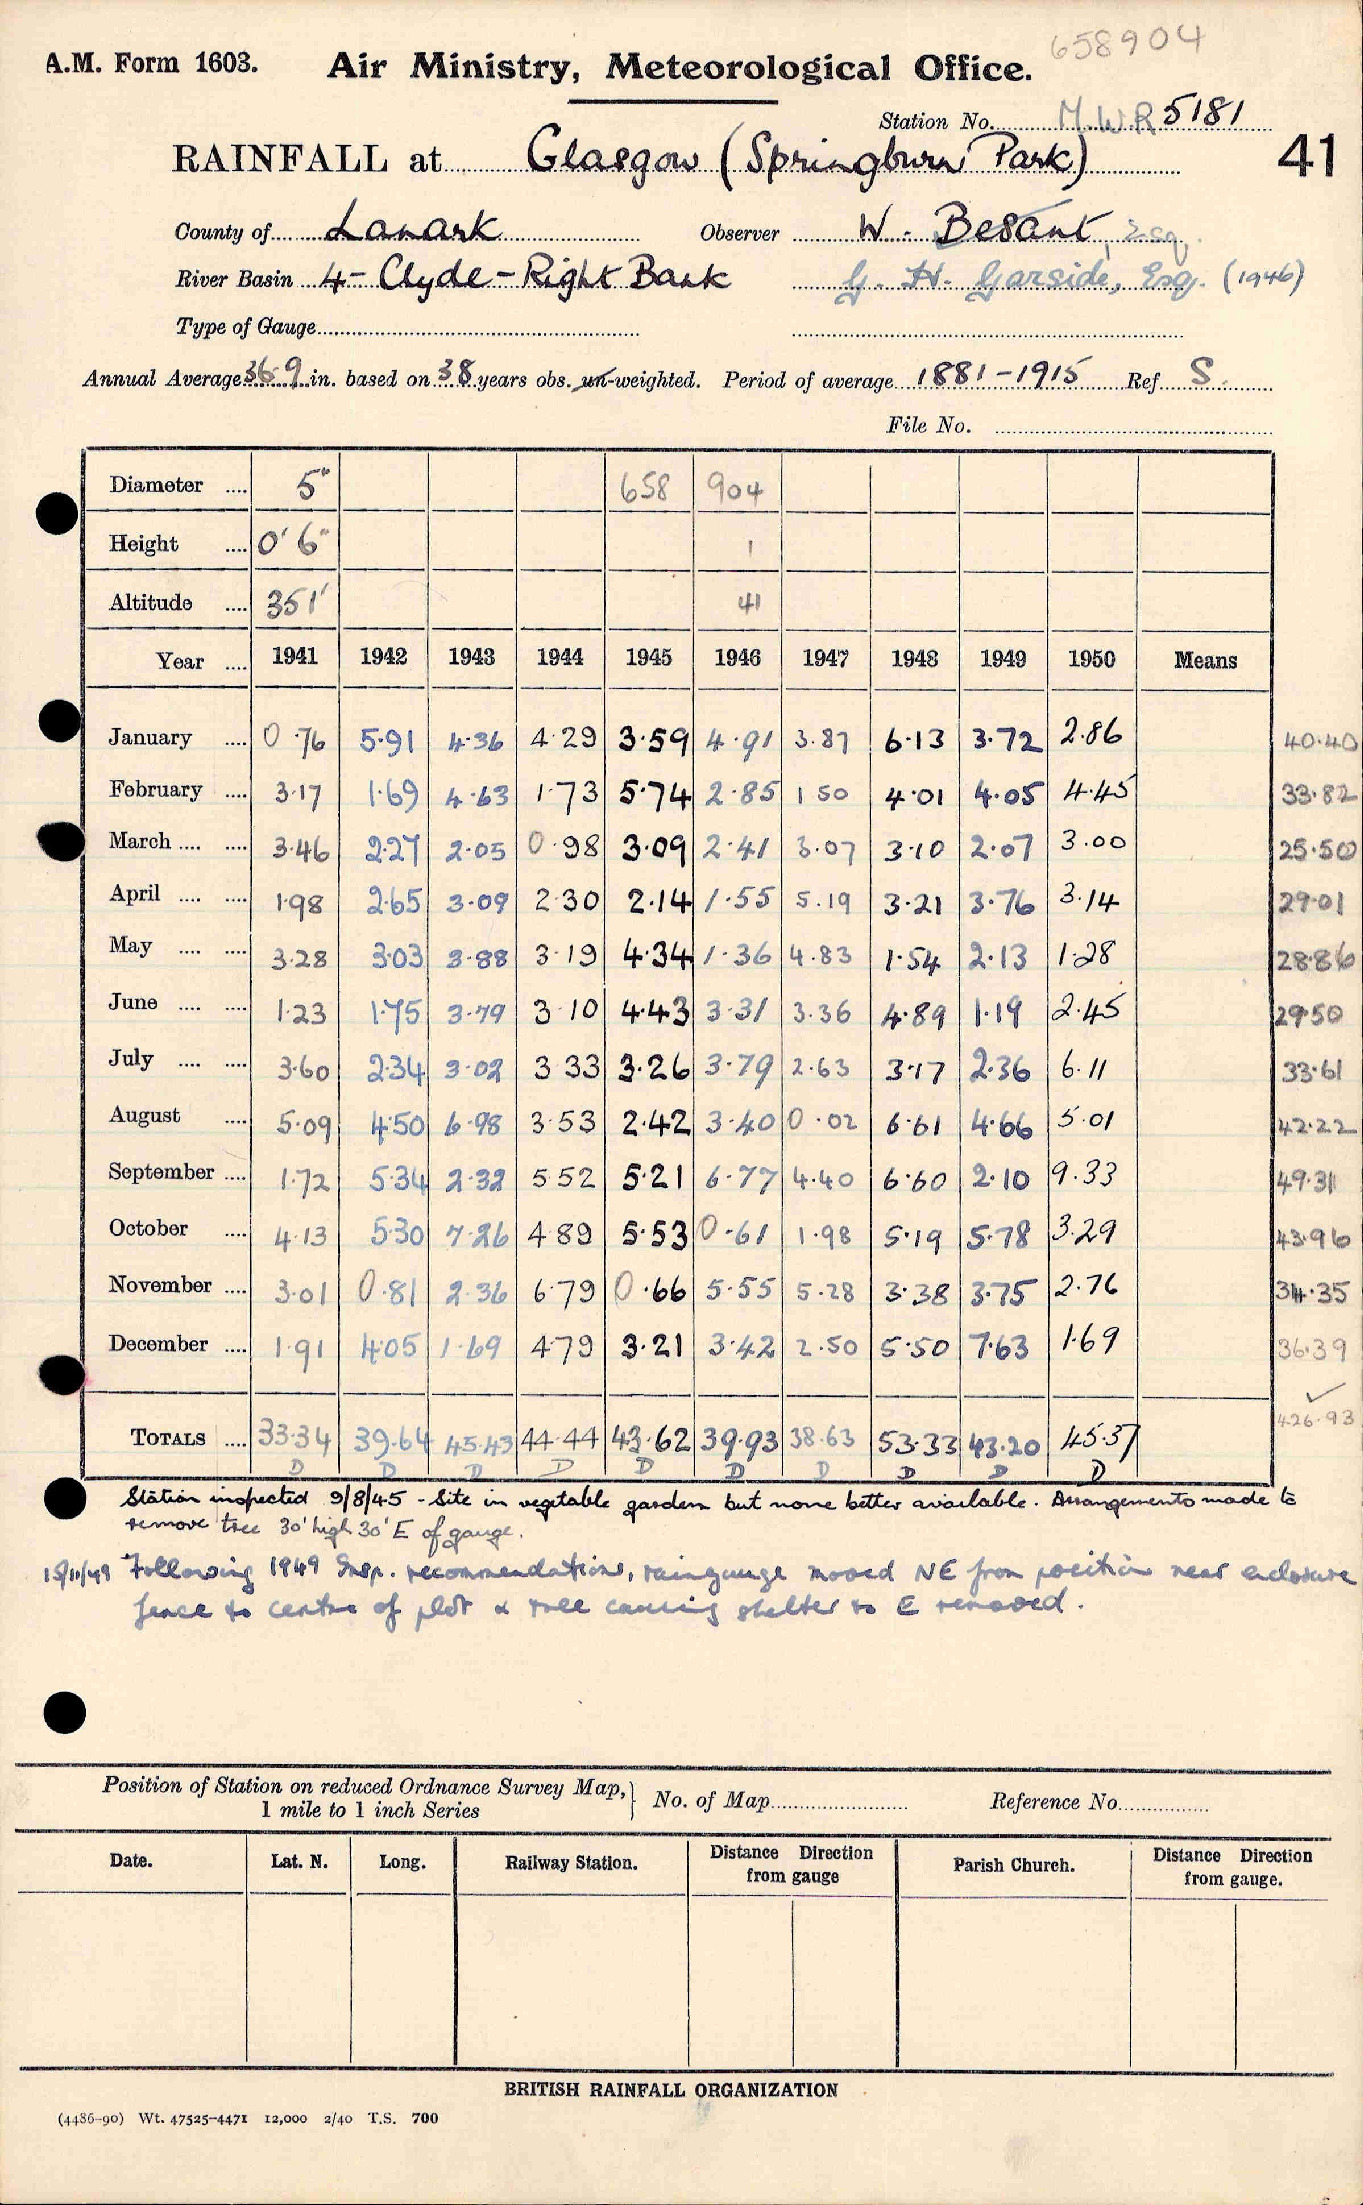 658904
A.M. Form 1603. Air Ministry, Meteorological Office.
Station No. M.W.R 5181
RAINFALL at Glasgow (Springburn Park) 41
County of Lanark Observer W. Besant, Esq.
River Basin 4 - Clyde - Right Bank G. H. Garside, Esq. (1946)
Type of Gauge
Annual Average 36.9 in. based on 38 years obs. un-weighted. Period of average 1881-1915 Ref S.
File No.
Diameter .... 5" 658 904
Height .... 0' 6" 1
Altitude .... 351' 41
Year .... 1941 1942 1943 1944 1945 1946 1947 1948 1949 1950 Means
January .... 0.76 5.91 4.36 4.29 3.59 4.91 3.87 6.13 3.72 2.86 40.40
February .... 3.17 1.69 4.63 1.73 5.74 2.85 1 50 4.01 4.05 4.45 33.82
March .... .... 3.46 2.27 2.05 0.98 3.09 2.41 3.07 3.10 2.07 3.00 25.50
April .... .... 1.98 2.65 3.09 2.30 2.14 1.55 5.19 3.21 3.76 3.14 29.01
May .... .... 3.28 3.03 3.88 3.19 4.34 1.36 4.83 1.54 2.13 1.28 28.86
June .... .... 1.23 1.75 3.79 3 10 4.43 3.31 3.36 4.89 1.19 2.45 29.50
July .... .... 3.60 2.34 3.02 3 33 3.26 3.79 2.63 3.17 2.36 6.11 33.61
August .... 5.09 4.50 6.98 3.53 2.42 3.40 0.02 6.61 4.66 5.01 42.22
September .... 1.72 5.34 2.32 5 52 5.21 6.77 4.40 6.60 2.10 9.33 49.31
October .... 4.13 5.30 7.26 4 89 5.53 0.61 1.98 5.19 5.78 3.29 43.96
November .... 3.01 0.81 2.36 6.79 0.66 5.55 5.28 3.38 3.75 2.76 34.35
December .... 1.91 4.05 1.69 4.79 3.21 3.42 2.50 5.50 7.63 1.69 36.39
TOTALS .... 33.34 39.64 45.43 44.44 43.62 39.93 38.63 53.33 43.20 45.37 426.93
D D D D D D D D D D
Station inspected 9/8/45 - Site in vegetable garden but none better available. Arrangements made to
remove tree 30' high 30' E of gauge.
15/11/49 Following 1949 Insp. recommendations, raingauge moved NE from position near enclosure
fence to centre of plot & tree causing shelter to E removed.
Position of Station on reduced Ordnance Survey Map, } No. of Map Reference No.
1 mile to 1 inch Series
Date. Lat. N. Long. Railway Station. Distance Direction from gauge Parish Church. Distance Direction from gauge.
BRITISH RAINFALL ORGANIZATION
(4486-90) Wt. 47525-4471 12,000 2/40 T.S. 700